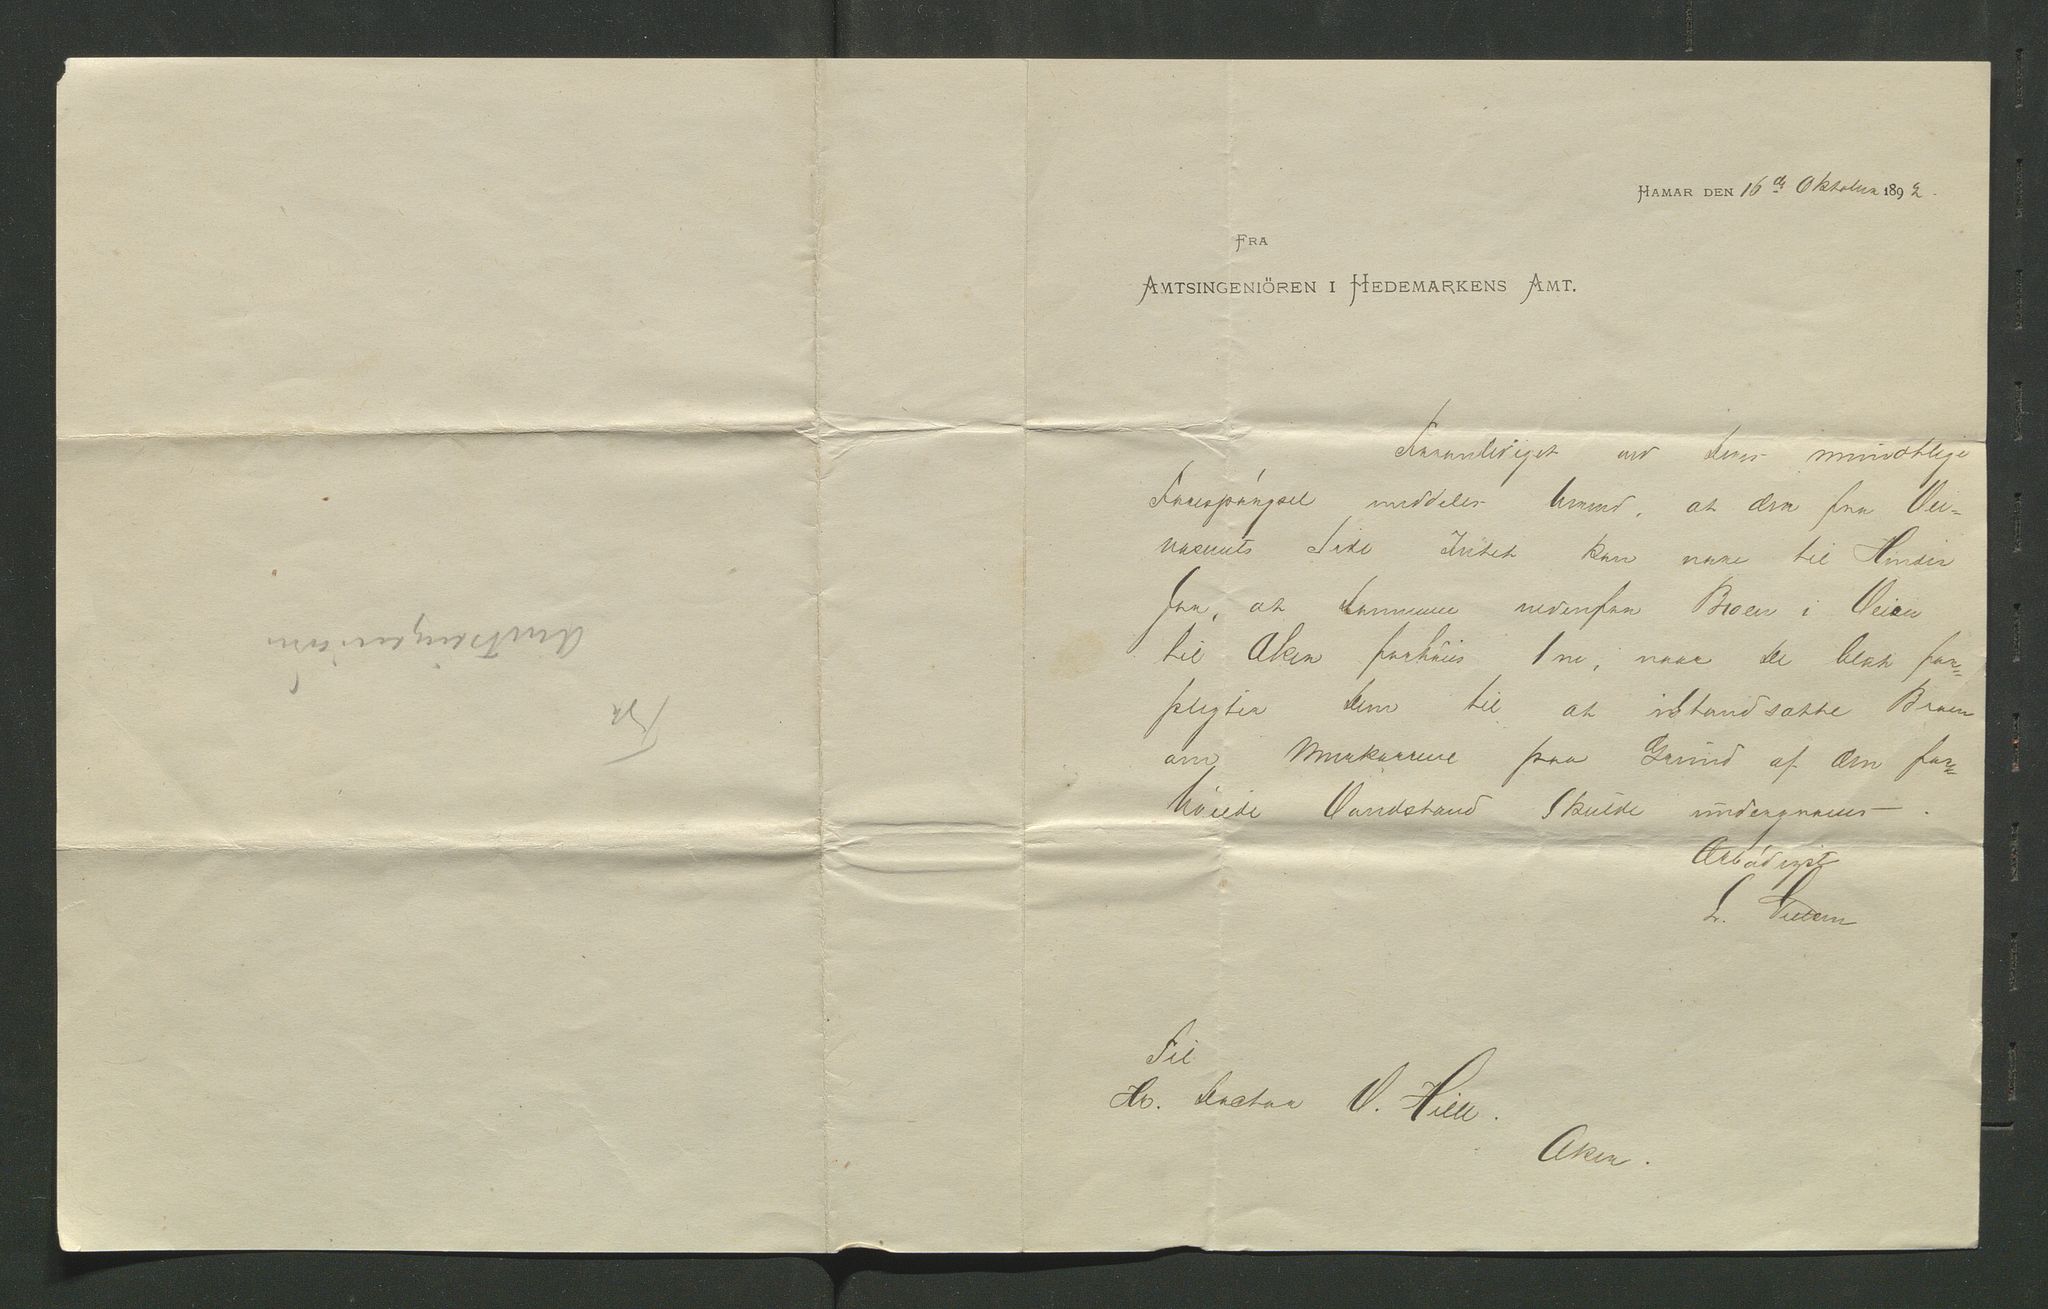 HAMAR DEN 16de Oktober 1892.
FRA
AMTSINGENIÖREN I HEDEMARKENS AMT.
Foranlediget ved Deres mundtlige
Forespørgsel meddeles herved, at der fra Vei-
væsenets Side Intet kan være til Hinder
for, at Dammen nedenfor Broen i Veien
til Aker forhøies 1 m, naar De blot for-
pligter Dem til at istandsætte Broen
om Murkarrene paa Grund af den for-
høiede Vandstand skulde undergraves.
Ærbødigst
L.
Til
Hr. Doctor V. Hille.
Aker.
Fra
Amtsingeniøren